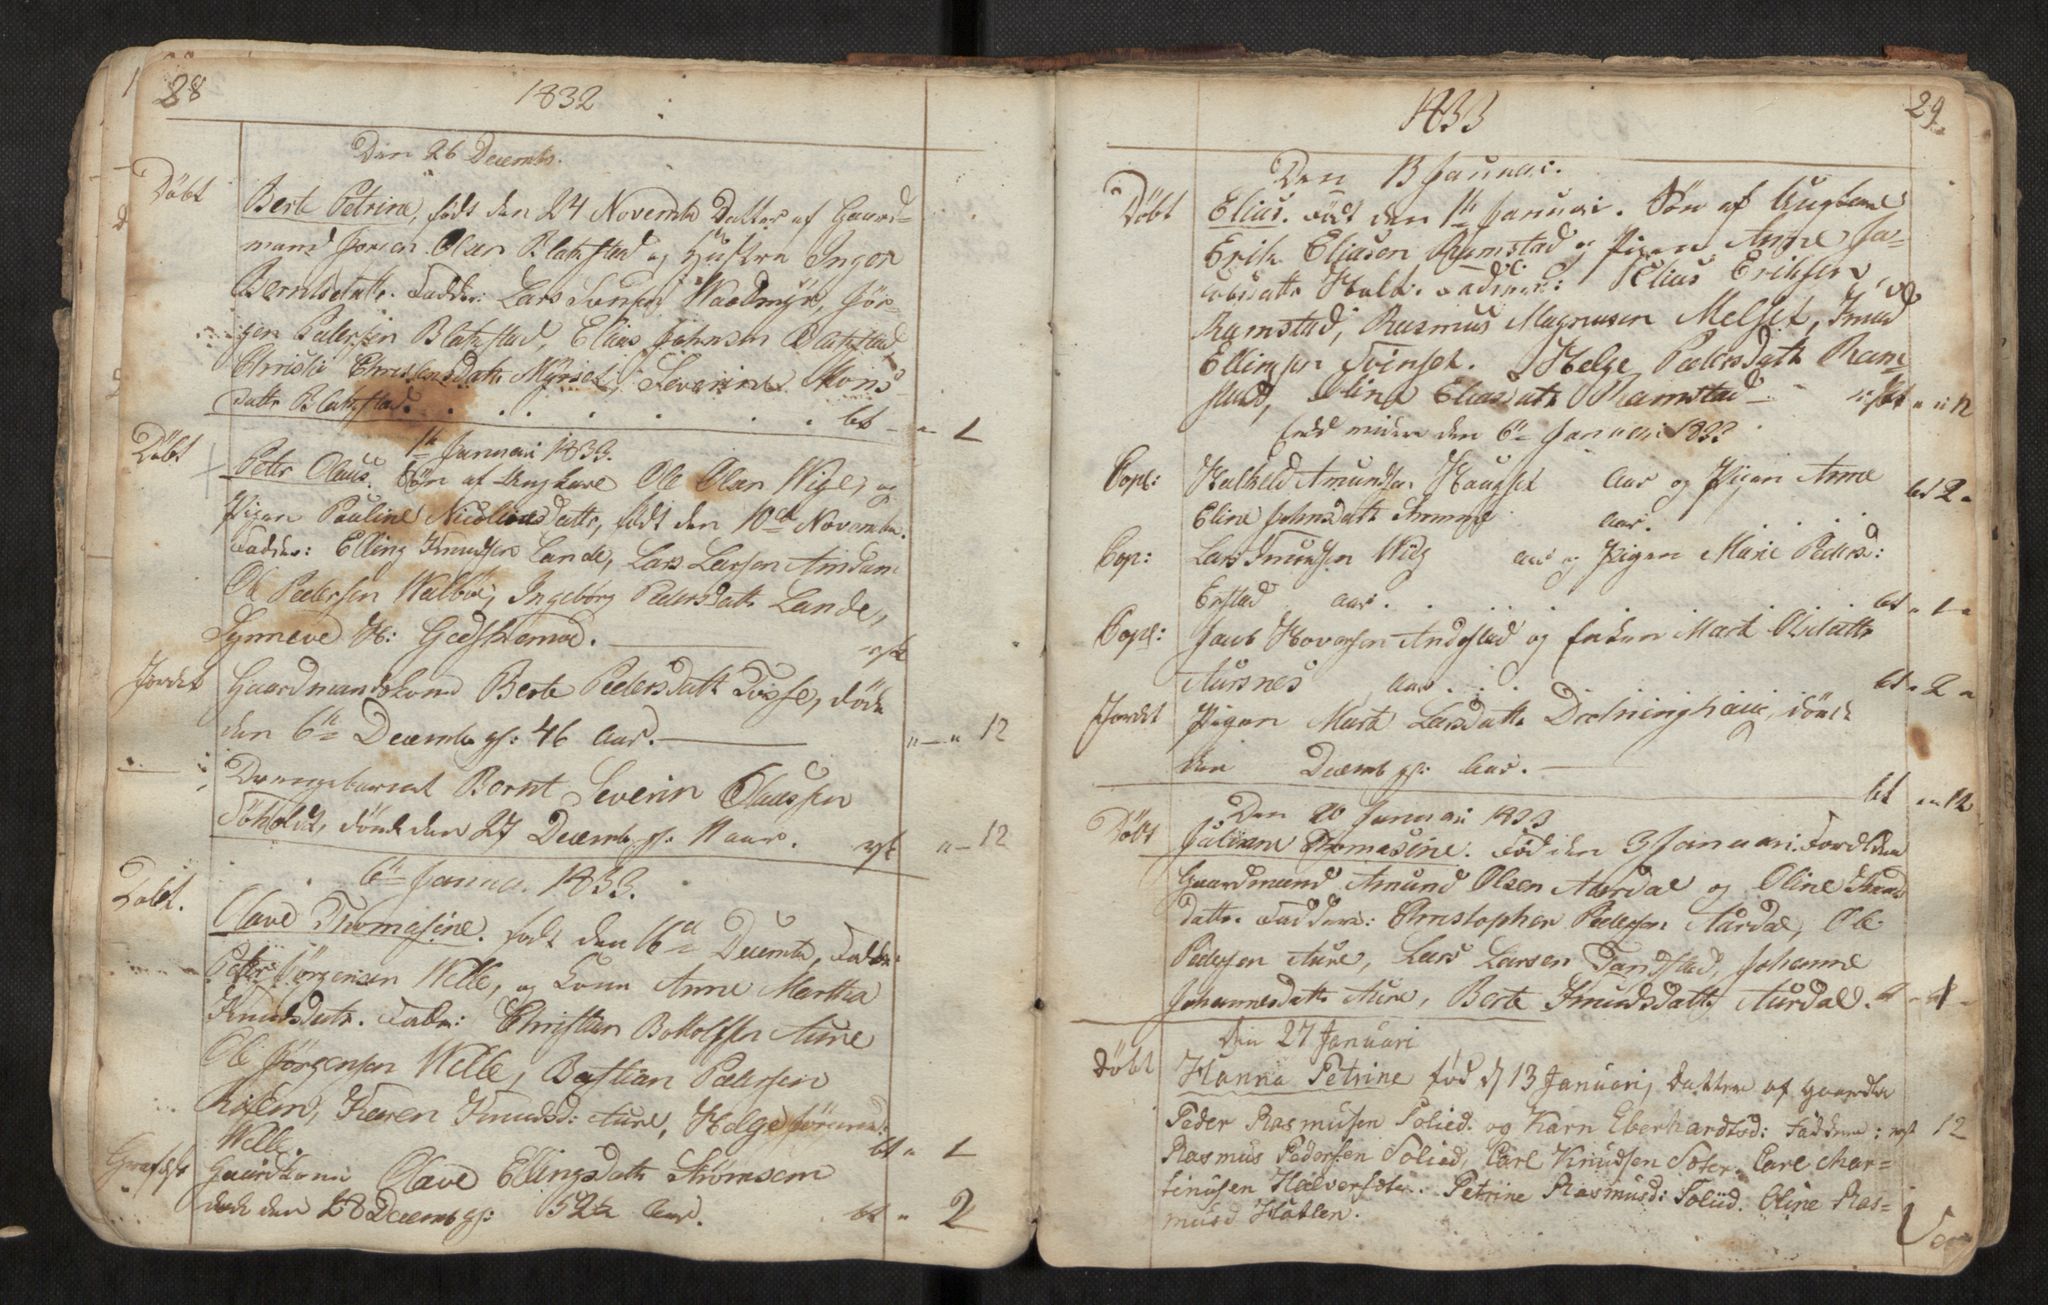 28
1832
Den 26 Decembr.
Døbt
Berte Petrine, født den 24 Novembr Datter af Gaard-
mand Olsen Blakstad og Hustru Inger
Berntsdattr. Faddr: Lars Waadmyr, Jør-
gen Pedersen Blakstad, Elias Johnsen Blakstad
Christi Christensdattr Myrset, Severine Mons
dattr Blakstad. bt - " 1
1te Januari 1833.
Døbt
Peter Olaus. Søn af Ungkare Ole Olsen Wige, og
Pigen Pauline Nicolinedattr, født den 10de Novembr.
Faddr: Elling Knudsen Lande, Lars Larsen Amdam
Ole Pedersen Welbøe, Ingeborg Pedersdattr Lande,
Synneve H: Godskamod.
Jordet
Gaardmandskone Berte Pedersdattr Tosse, døde
den 6te Decembr gl: 46 Aar. " - " 12
Drengebarnet Bernt Severin Olaussen
død den 27 Decembr gl. 11 aar. " - 12
6te Janua. 1833.
Døbt.
Olave Thomasine. født den 16de Decembr, Fadr:
Peter Jørgensen Welle, og Kone Anne Martha
Knudsdatr. Fadr: Christian Botolfsen Aure
Ole Jørgensen Welle, Bastian Pedersen
Karen Knudsd: Aure, Helge
Welle. bt " 1
Gaardkone Olave Ellingsdattr Strømmen
døde den 28 Decembr gl: 52 Aar. bt " 2
1833
29
Den 13 Januari.
Døbt
Elias. Født den 1te Januari. Søn af Ungkare
Erik Eliasen Ramstad og Pigen Anne Ja-
cobsdattr Holt. Faddere: Elias Eriksen
Ramstad, Rasmus Magnusen Melset, Knud
Ellingsen Tvinset. Helge Pedersdattr Ram
stad, Oline Eliasdattr Ramstad - " " 12
den 6te Januari 1833
Copl:
Amundsen Haugset Aar og Pigen Anne
Eline Johnsdattr Aar. bt 2 "
Cop:
Lars Knudsen Wiig Aar og Pigen Marie Peders:
Erstad Aar. bt " 1 "
Copl:
Jacob Hoversen Andestad og Enken Marte
Aursnes Aar. bt " 2 "
Jordet
Pigen Marte Larsdattr Drotninghaug, døde
den Decemb gl: Aar.
bt " " 12
Den 20 Januari 1833
Døbt
Juliane Thomasine. Fød den 3 Januari. Forældre
Gaardmand Amund Olsen Aurdal og Oline
dattr. Faddere: Christopher Pedersen Aurdal, Ole
Pedersen Aure, Lars Larsen Tandstad, Johanne
Johannesdattr Aure, Berte Knudsdattr Aurdal. " 1 -
Den 27 Januari
Døbt
Hanna Petrine fød d 13 Januari, Datter af Gaardbr
Peder Rasmusen Soliid. og Karn Eberhardtsd: Faddere: 12
Rasmus Pedersen Soliid, Carl Knudsen Sæter. Carl Mar-
tinusen Halversæter. Petrine Rasmusd: Soliid. Oline Ras-
musd